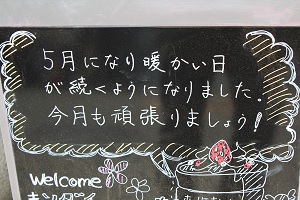 5月になり暖かい日
が続くようになりました.
今月も頑張りましょう!
Welcome